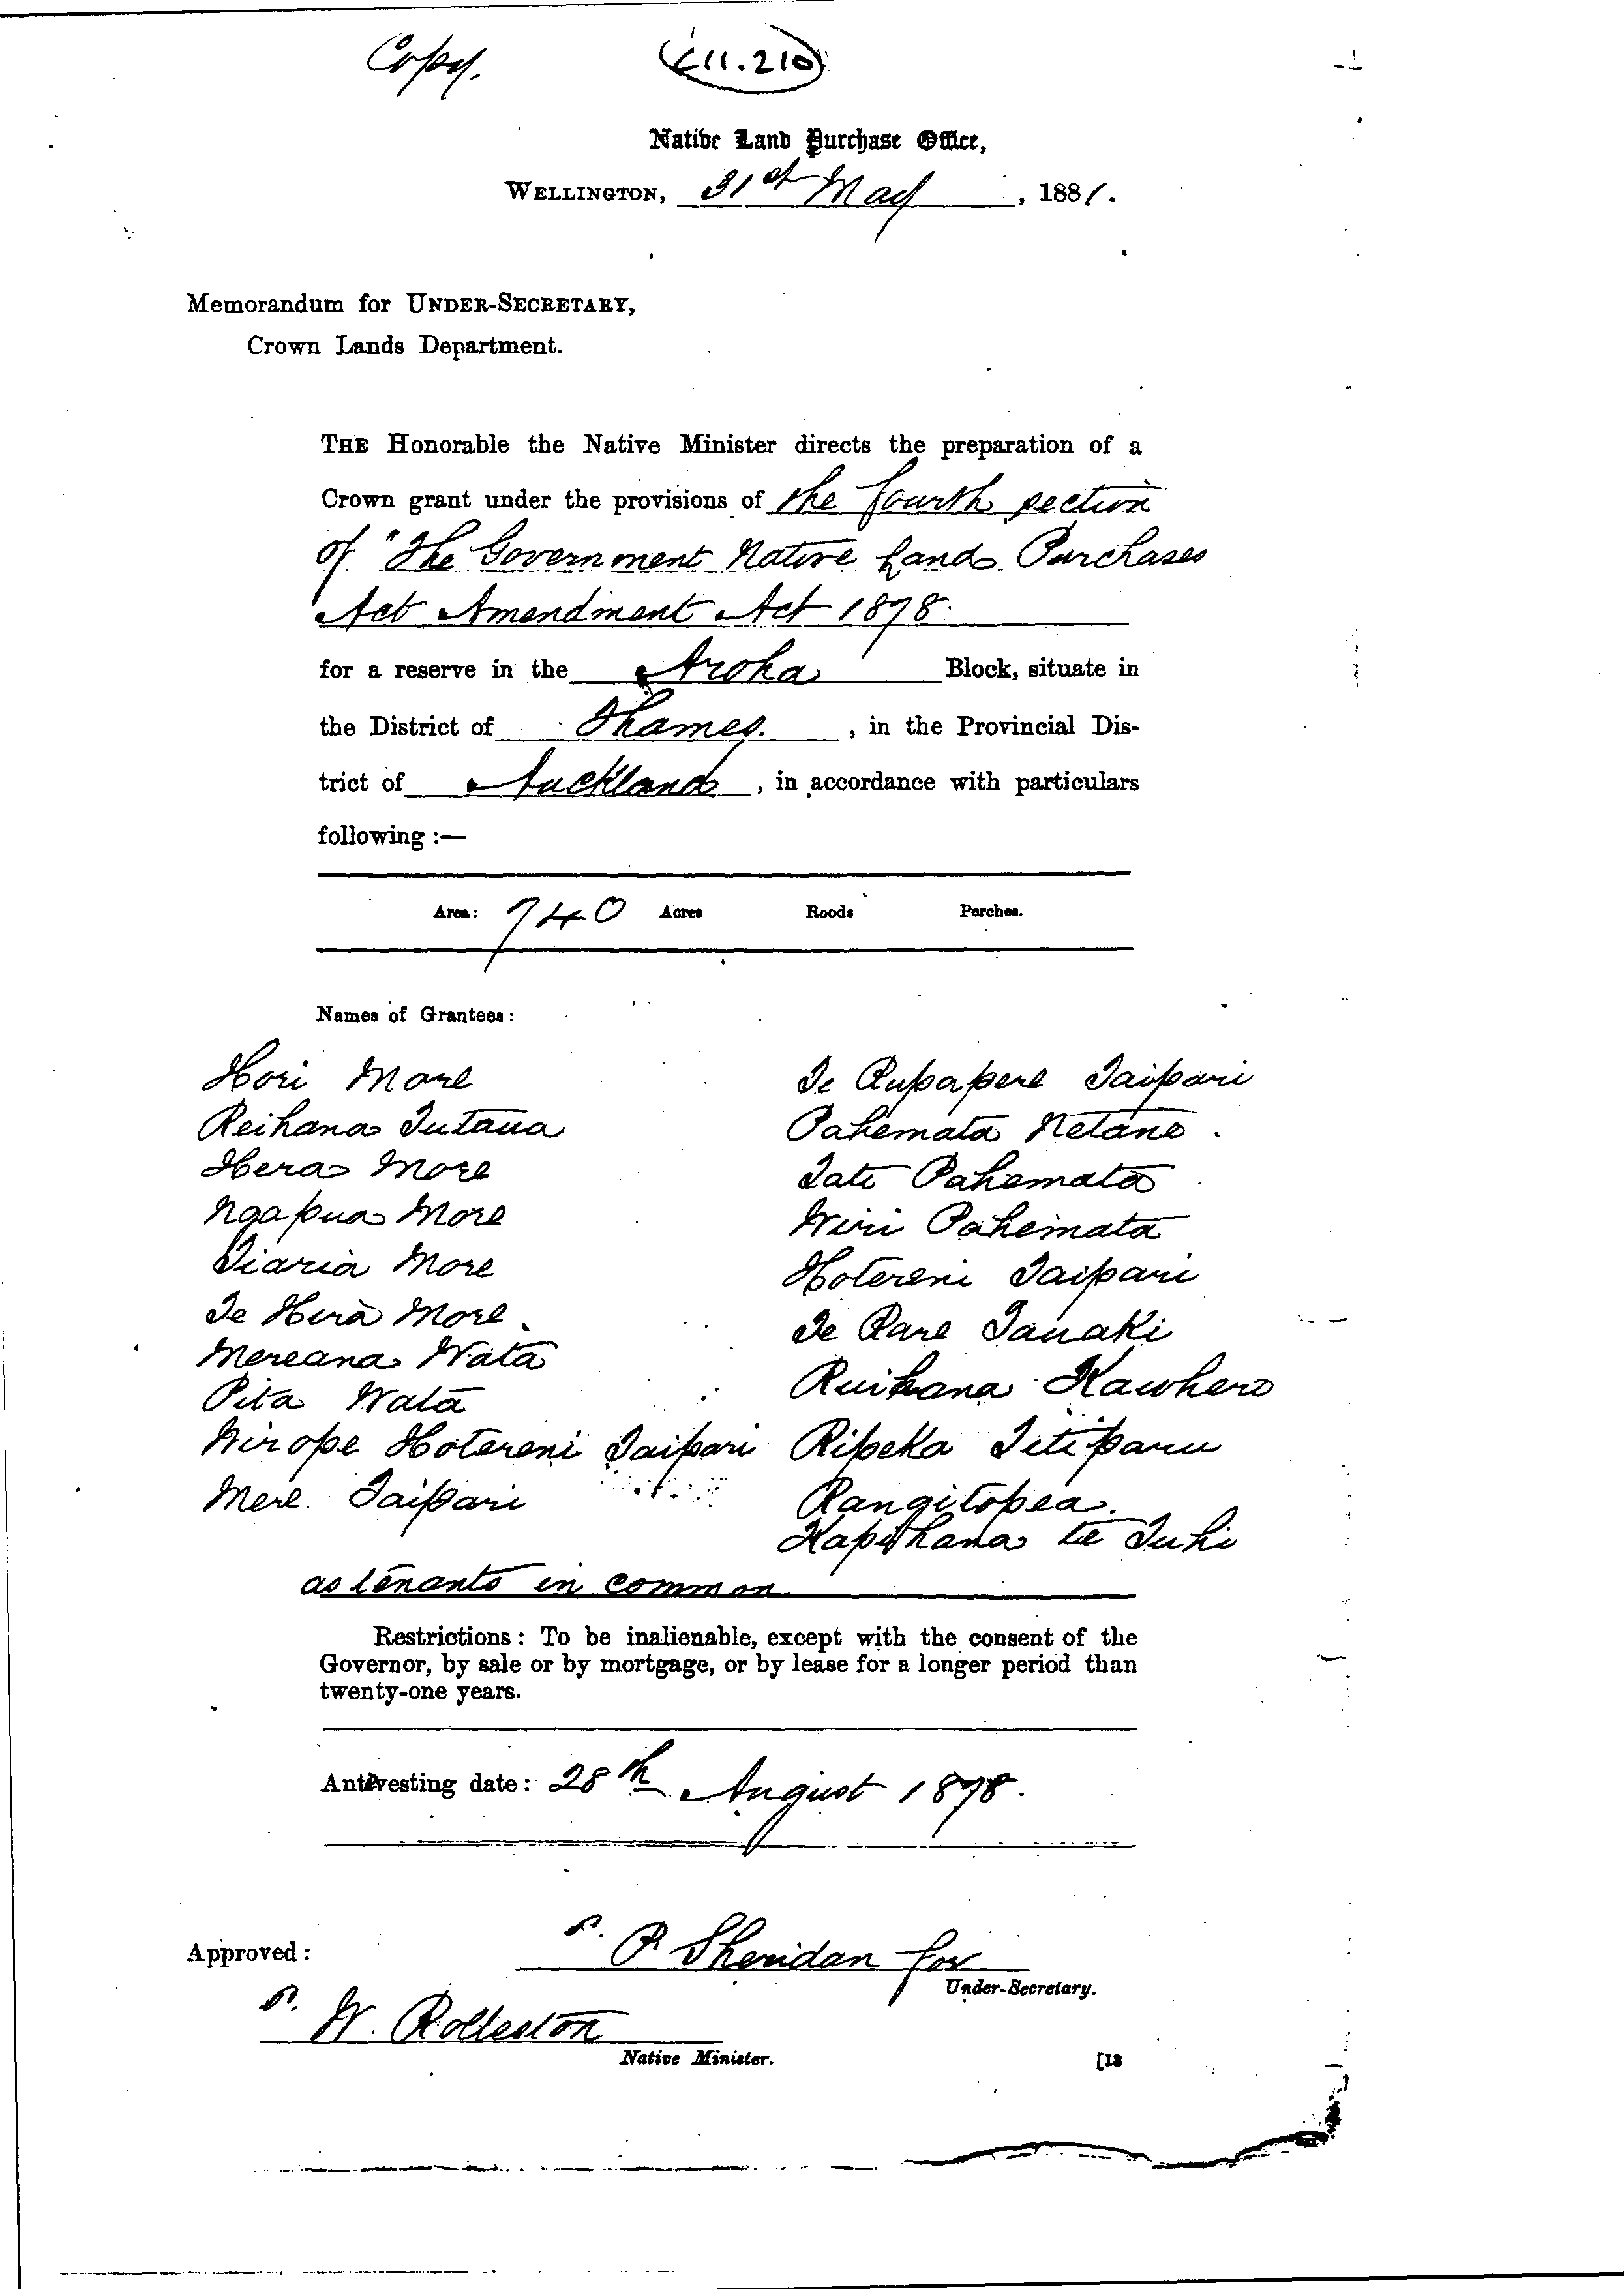 Copy.
E11.210
Native Land Purchase Office,
WELLINGTON, 31st May, 1881.
Memorandum for UNDER-SECRETARY,
Crown Lands Department.
THE Honorable the Native Minister directs the preparation of a
Crown grant under the provisions of the fourth section
of "The Government Native Lands Purchases
Act Amendment Act 1878.
for a reserve in the Aroha Block, situate in
the District of Thames. , in the Provincial Dis-
trict of Auckland , in accordance with particulars
following :—
Area: 740 Acres Roods Perches.
Names of Grantees:
Hori More
Reihana Tutaua
Hera More
Ngapua More
Diaria More
Te Hira More.
Mereana Wata
Pita Wata
Wirope Hotereni Taipari
Mere. Taipari
Te Rupapere Taipari
Pahemata Netana.
Tati Pahemata
Wiri Pahemata
Hotereni Taipari
Te Rare Tanaki
Ruihana Kawhero
Ripeka Titipanu
Rangitopea.
Hapihana te Tuhi
as tenants in common
Restrictions: To be inalienable, except with the consent of the
Governor, by sale or by mortgage, or by lease for a longer period than
twenty-one years.
Antevesting date: 28th August 1878.
Approved:
s. P. Sheridan for
Under-Secretary.
s. W. Rolleston
Native Minister.
[13